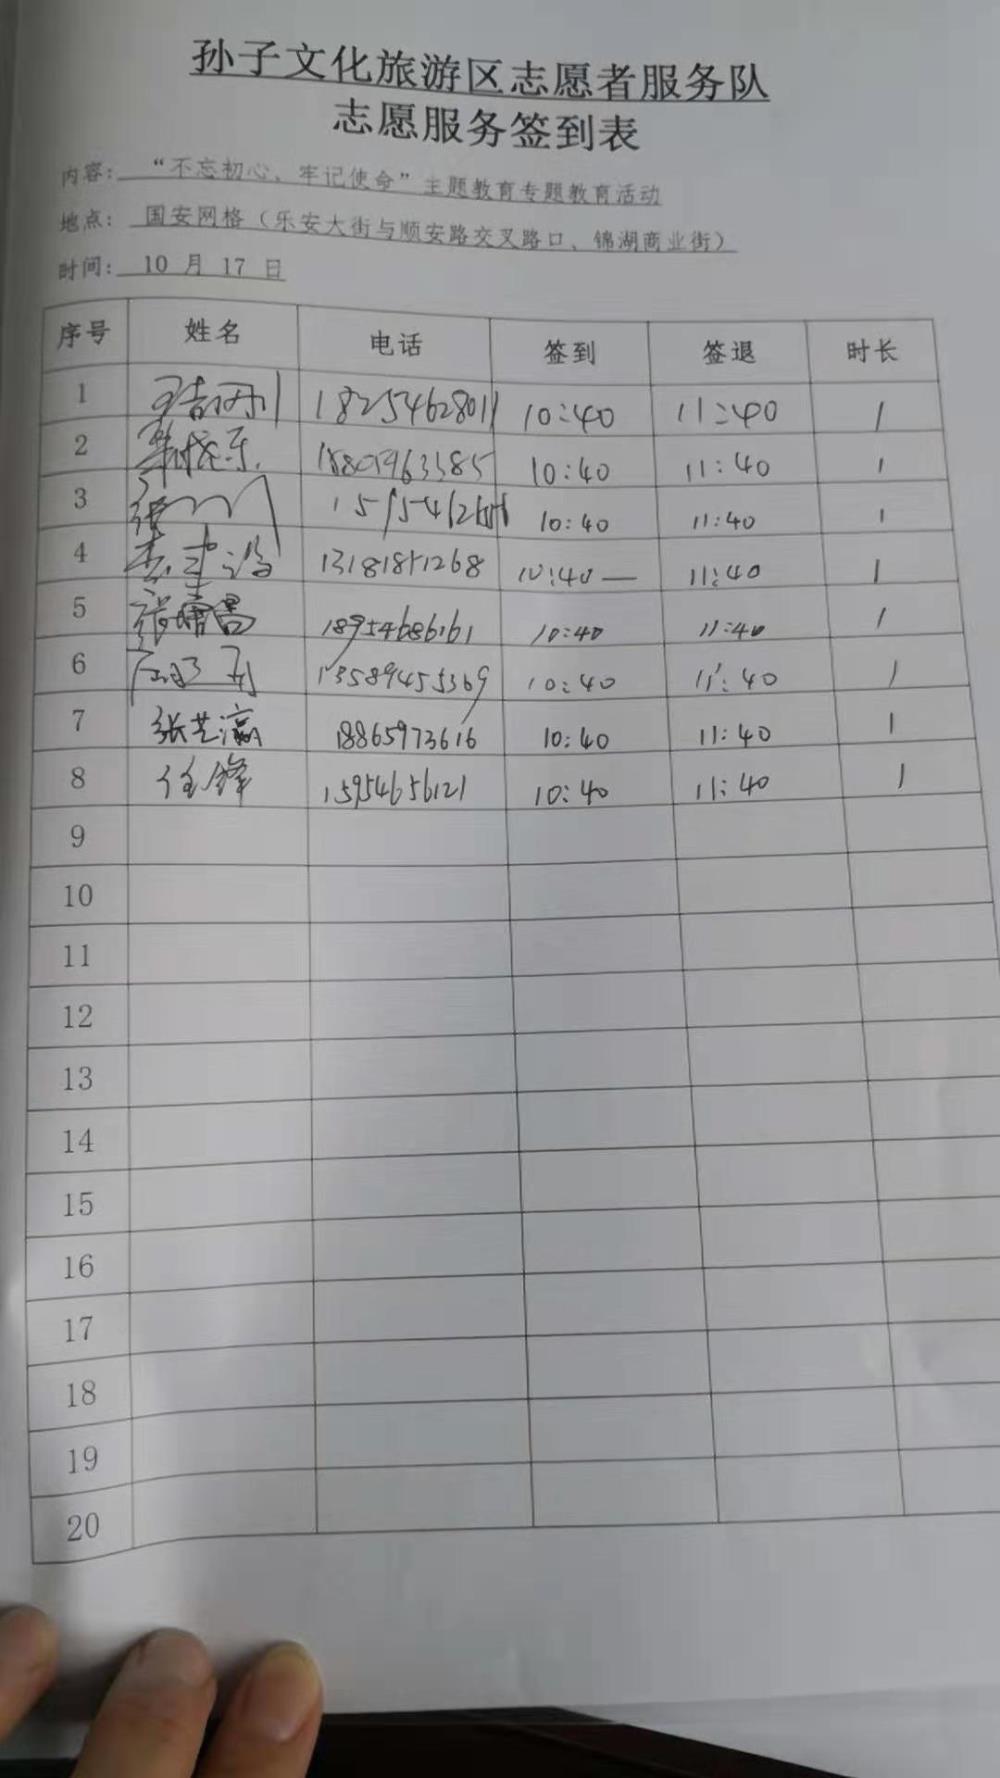 孙子文化旅游区志愿者服务队
志愿服务签到表
内容：“不忘初心、牢记使命”主题教育专题教育活动
地点：国安网格（乐安大街与顺安路交叉路口、锦湖商业街）
时间：10 月 17 日
序号 姓名 电话 签到 签退 时长
1 18254628011 10:40 11:40 1
2 10:40 11:40 1
3 张 10:40 11:40 1
4 李建设 13181851268 10:40— 11:40 1
5 张 18954686161 10:40 11:40 1
6 13589455369 10:40 11:40 1
7 张艺瀛 18865973616 10:40 11:40 1
8 任锋 15954656121 10:40 11:40 1
9
10
11
12
13
14
15
16
17
18
19
20